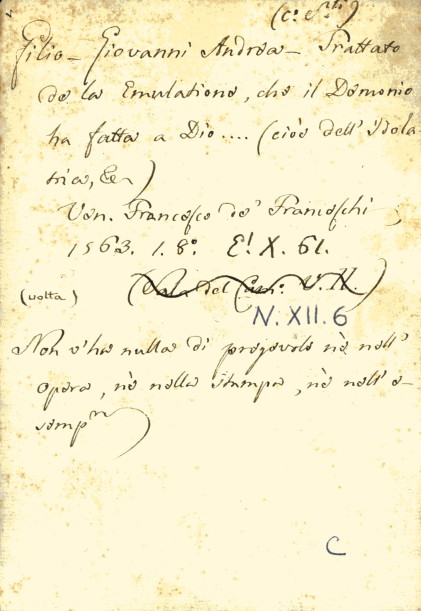 (c.e
Gilio - Giovanni Andrea - Trattato
de la Emulatione, che il Demonio
ha fatta a Dio .... (cioè dell'Idola-
tria, &c)
Ven. Francesco de' Franceschi,
1563. 1. 8.° E! X. 61.
(volta) del V.
N. XII. 6
Non v'ha nulla di pregevole nè nell'
opera, nè nella stampa, nè nell'e-
semp.
C